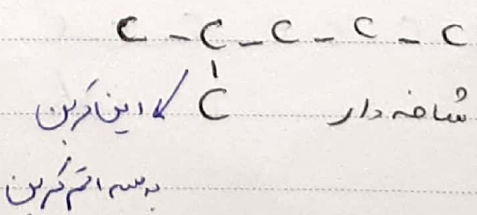 C - C - C - C - C
|
C شاخه دار
این کربن
به سه اتم کربن